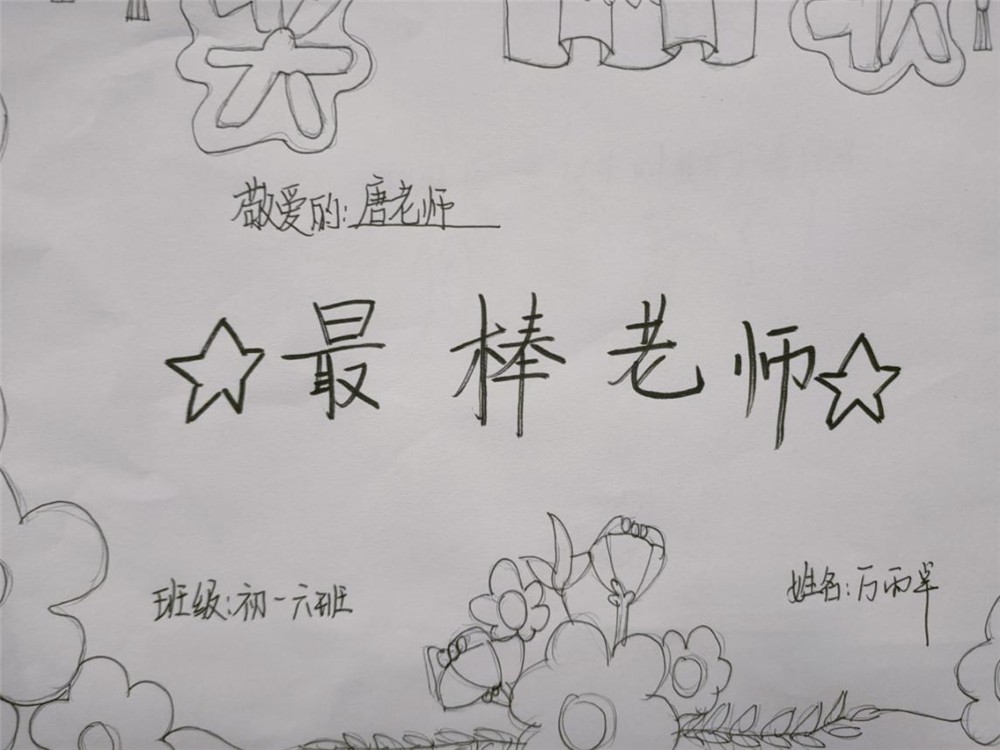 敬爱的:唐老师
最棒老师
班级:初一六班
姓名:万雨